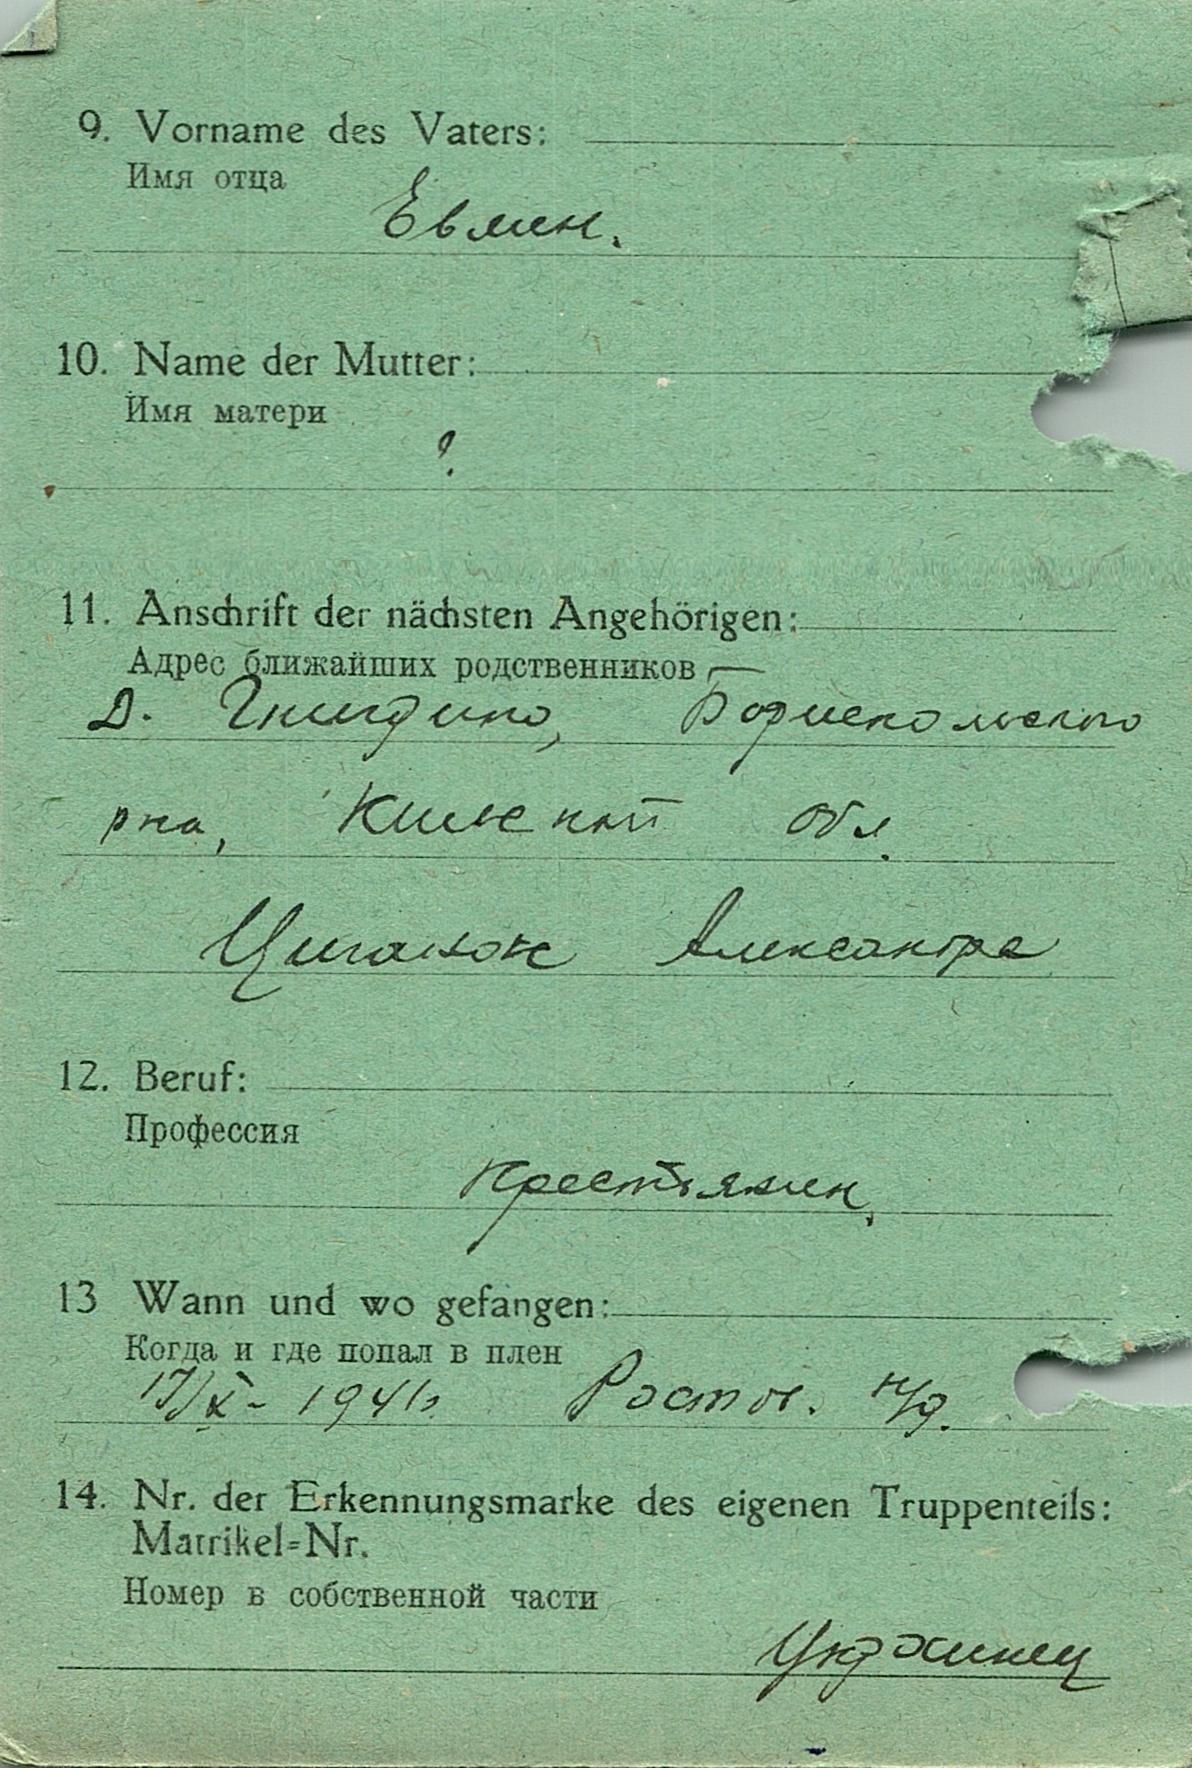 9. Vorname des Vaters:
Имя отца
Евмен.
10. Name der Mutter:
Имя матери
?
11. Anschrift der nächsten Angehörigen:
Адрес ближайших родственников
д. Гнидино, Бориспольского
рна, Киевской обл.
Циганок Александра
12. Beruf:
Профессия
Крестьянин,
13 Wann und wo gefangen:
Когда и где попал в плен
17/X - 1941г. Ростов. н/д.
14. Nr. der Erkennungsmarke des eigenen Truppenteils:
Matrikel=Nr.
Номер в собственной части
Украинец